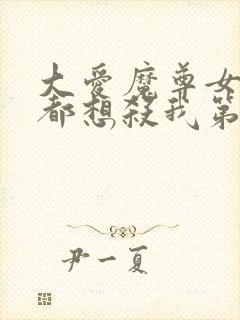 大爱魔尊女
都想殺我第
尹一夏